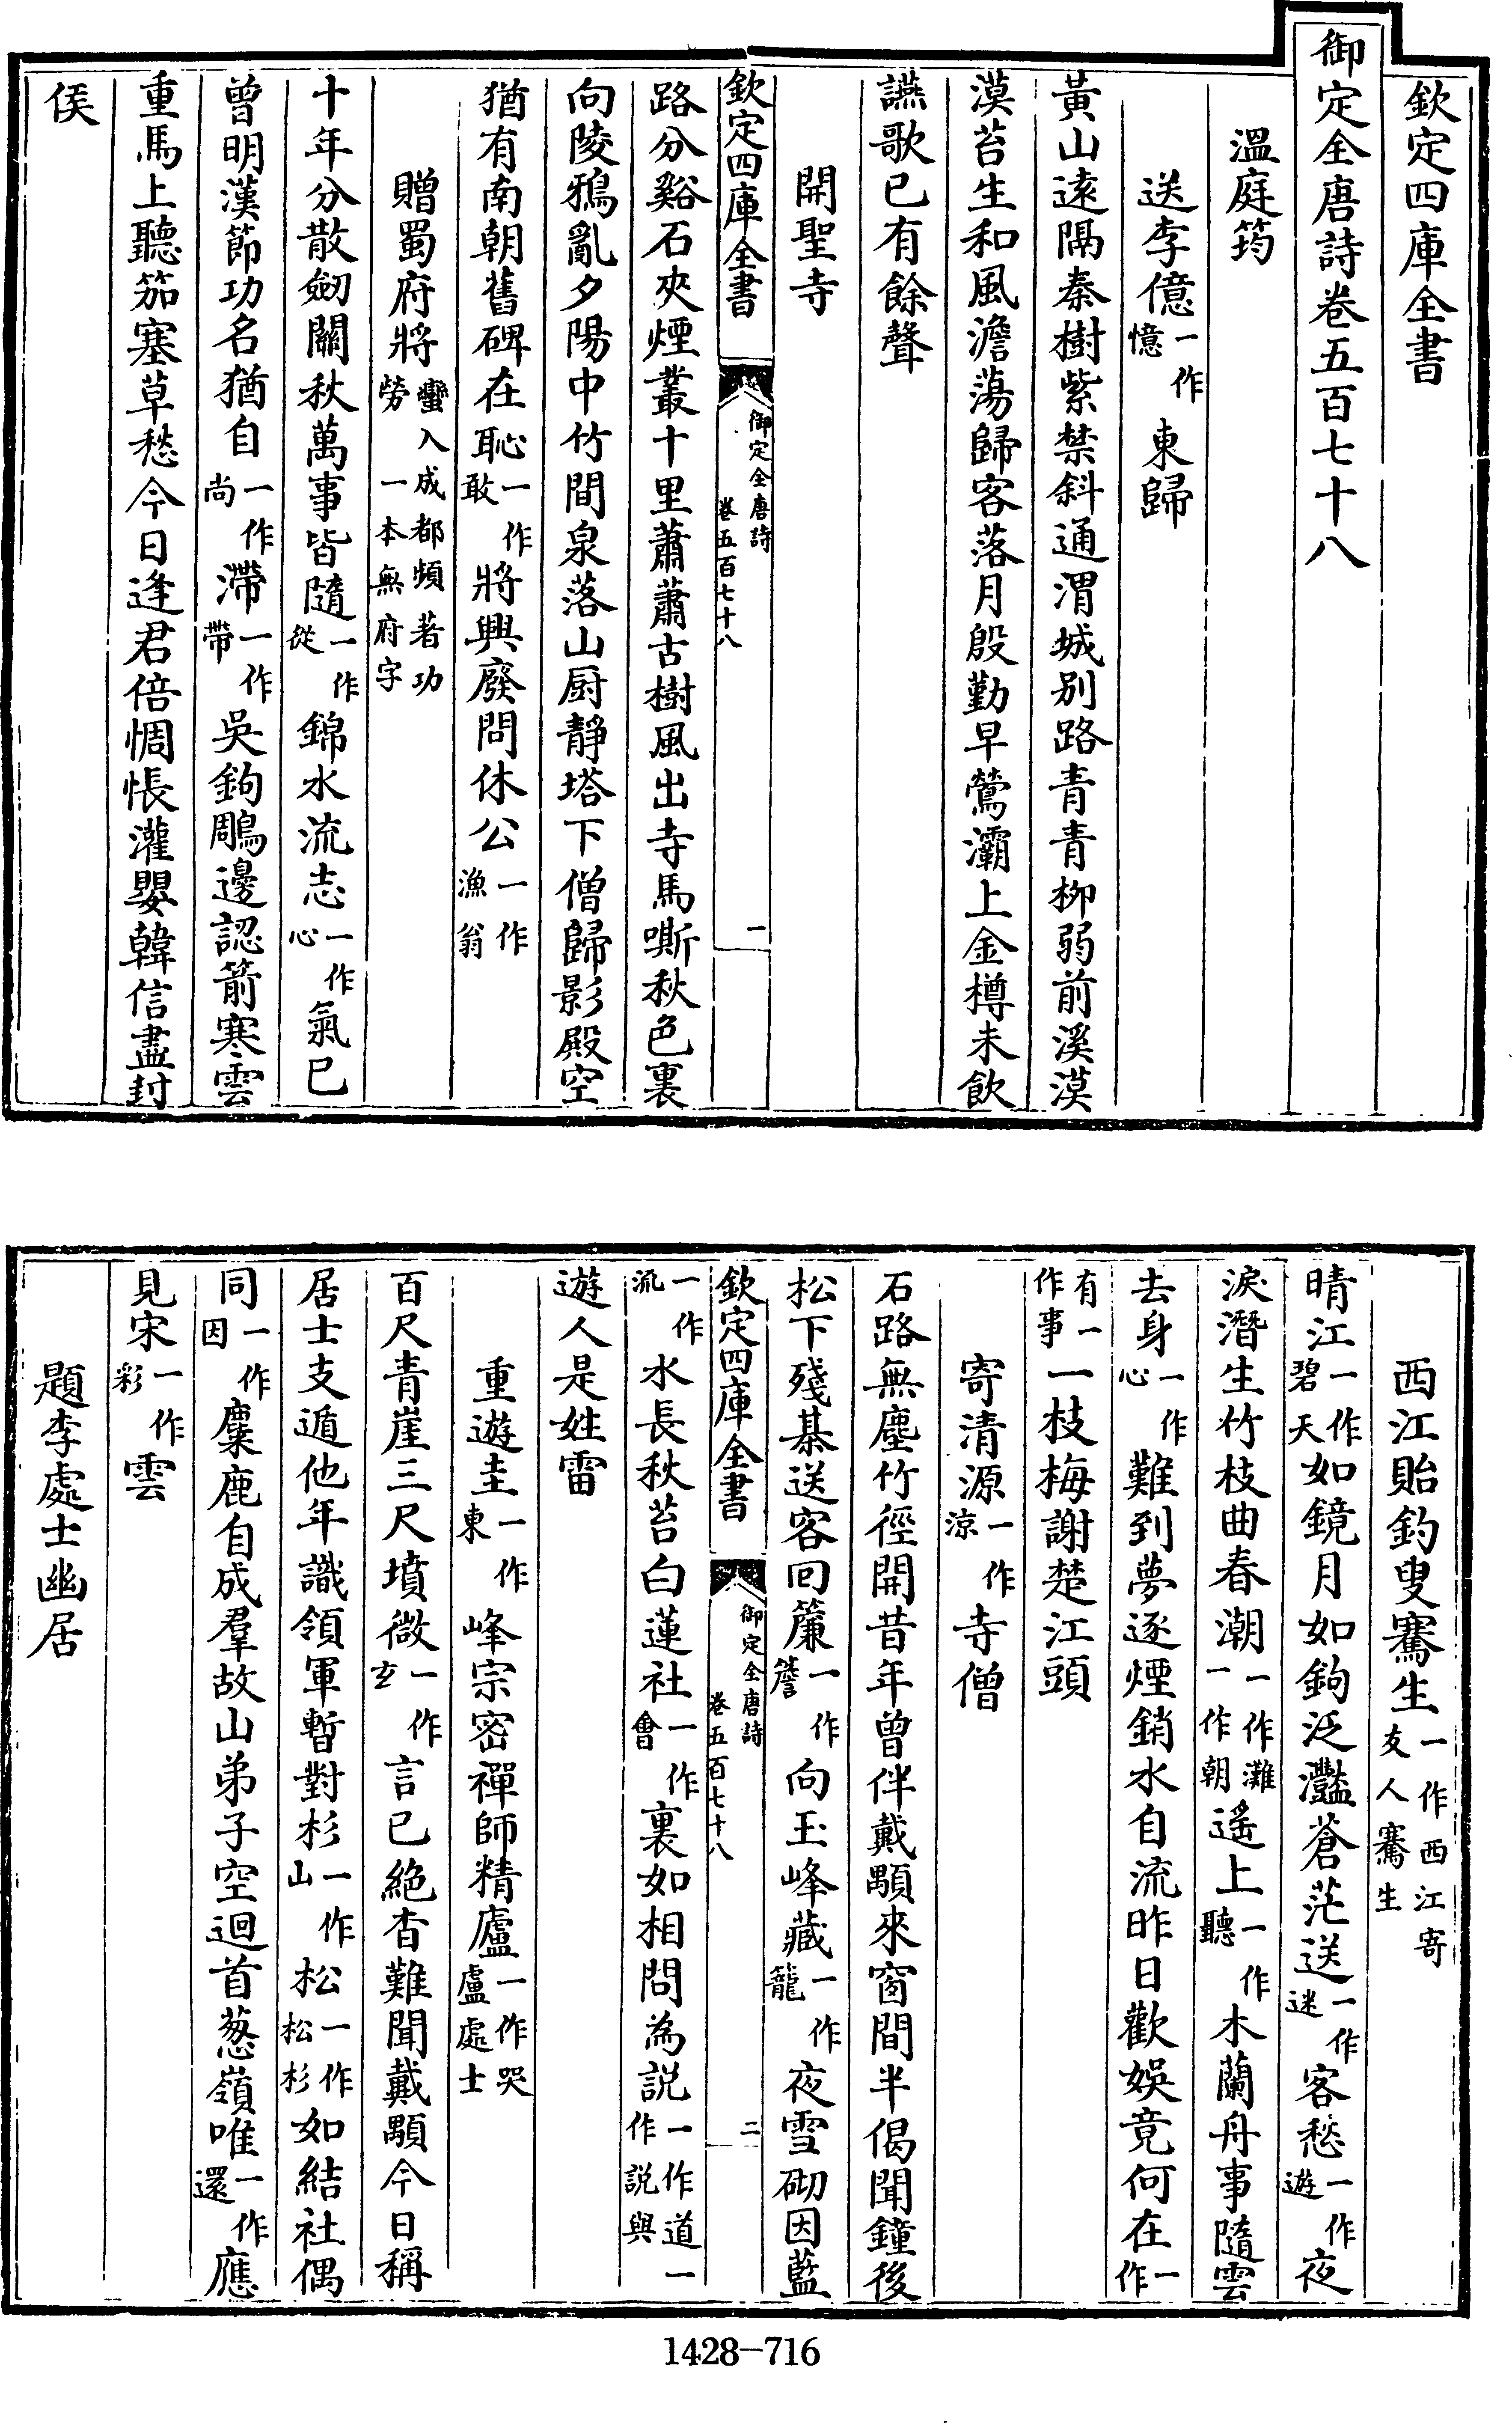 欽定四庫全書
御定全唐詩卷五百七十八
溫庭筠
送李億一作憶東歸
黃山遠隔秦樹紫禁斜通渭城別路青青柳弱前溪漠
漠苔生和風澹蕩歸客落月殷勤早鶯灞上金樽未飲
讌歌已有餘聲
開聖寺
欽定四庫全書 御定全唐詩 卷五百七十八 一
路分谿石夾煙叢十里蕭蕭古樹風出寺馬嘶秋色裏
向陵鴉亂夕陽中竹間泉落山厨靜塔下僧歸影殿空
猶有南朝舊碑在恥一作敢將興廢問休公一作漁翁
贈蜀府將蠻入成都頻著功勞一本無府字
十年分散劒關秋萬事皆隨一作從錦水流志一作心氣已
曾明漢節功名猶自一作尚滯一作帶吳鉤鵰邊認箭寒雲
重馬上聽笳塞草愁今日逢君倍惆悵灌嬰韓信盡封
侯
西江貽釣叟騫生一作西江寄友人騫生
晴江一作碧天如鏡月如鉤泛灩蒼茫送一作迷客愁一作遊夜
淚潛生竹枝曲春潮一作灘一作朝遙上一作聽木蘭舟事隨雲
去身一作心難到夢逐煙銷水自流昨日歡娛竟何在一作
有一作事一枝梅謝楚江頭
寄清源一作涼寺僧
石路無塵竹徑開昔年曾伴戴顒來窗間半偈聞鐘後
松下殘棊送客回簾一作簷向玉峰藏一作籠夜雪砌因藍
欽定四庫全書 御定全唐詩 卷五百七十八 二
一作流水長秋苔白蓮社一作會裏如相問為說一作道一作說與
遊人是姓雷
重遊圭一作東峰宗密禪師精廬一作哭盧處士
百尺青崖三尺墳微一作玄言已絶杳難聞戴顒今日稱
居士支遁他年識領軍暫對杉一作山松一作松杉如結社偶
同一作因麋鹿自成羣故山弟子空迴首葱嶺唯一作還應
見宋一作彩雲
題李處士幽居
1428-716